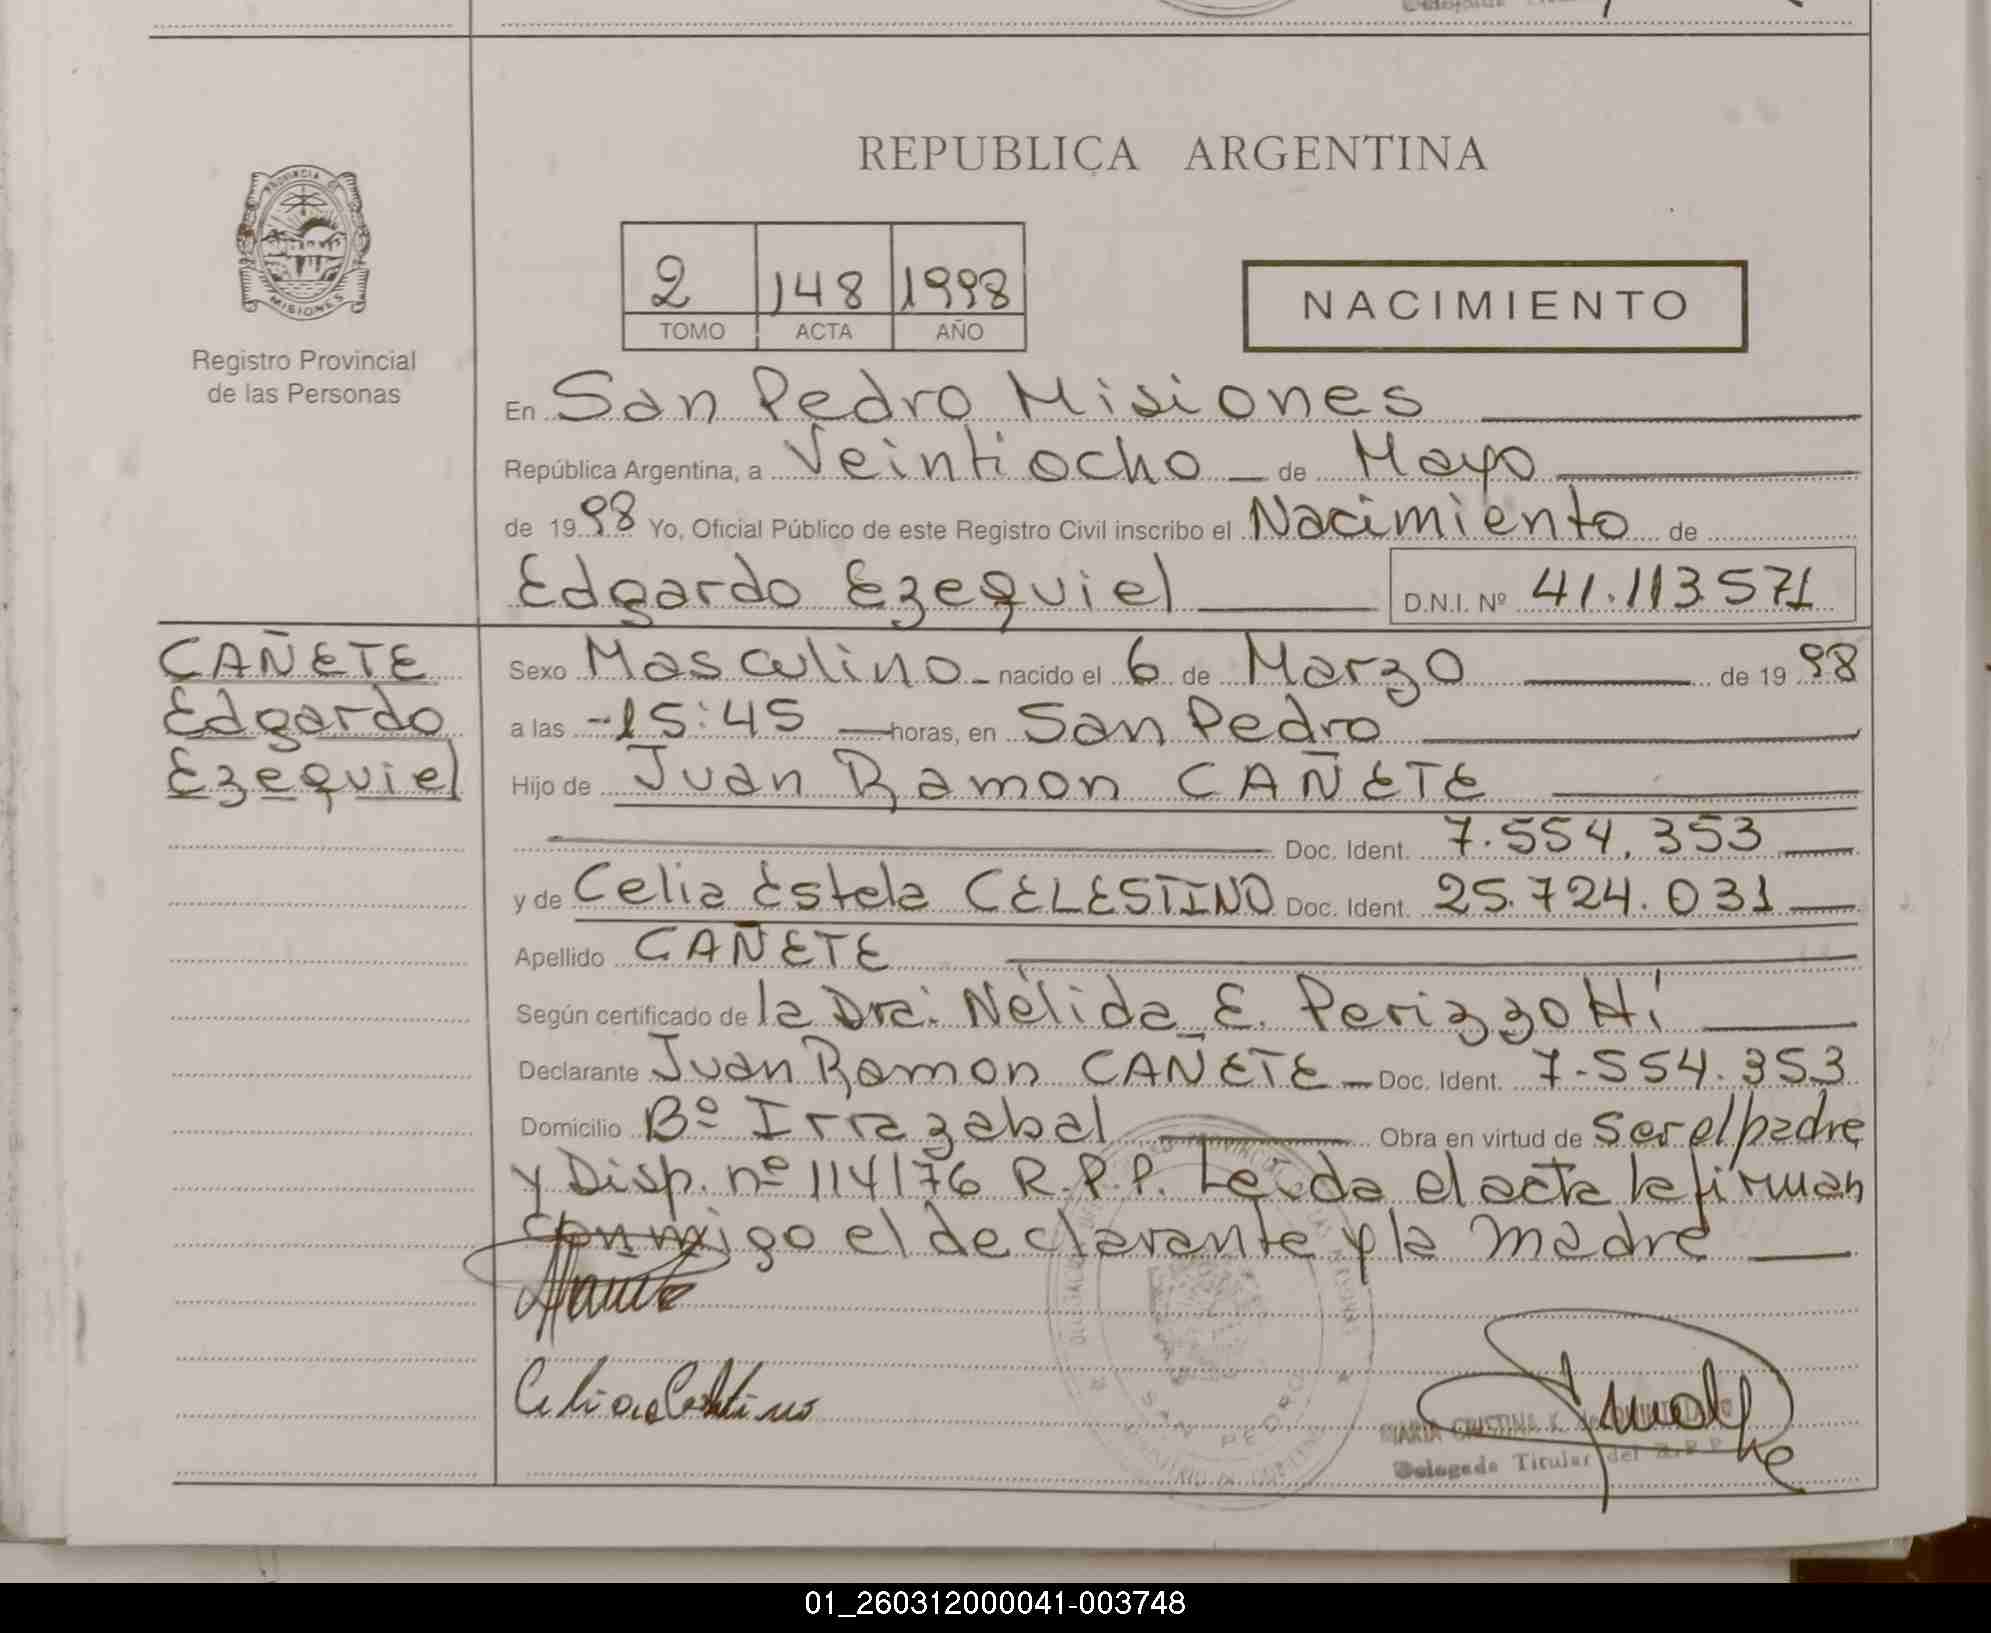 REPUBLICA ARGENTINA
PROVINCIA DE
MISIONES
Registro Provincial
de las Personas
2 148 1998
TOMO ACTA AÑO
NACIMIENTO
En San Pedro Misiones
República Argentina, a Veintiocho de Mayo
de 1998 Yo, Oficial Público de este Registro Civil inscribo el Nacimiento de
Edgardo Ezequiel D.N.I. Nº 41.113.571
CAÑETE
Edgardo
Ezequiel
Sexo Masculino nacido el 6 de Marzo de 1998
a las 15:45 horas, en San Pedro
Hijo de Juan Ramon CAÑETE
Doc. Ident. 7.554.353
y de Celia Estela CELESTINO Doc. Ident. 25.724.031
Apellido CAÑETE
Según certificado de la Dra. Nélida E. Perizzotti
Declarante Juan Ramon CAÑETE Doc. Ident. 7.554.353
Domicilio Bº Irrazabal Obra en virtud de ser el padre
y Disp. nº 114/76 R.P.P. Leída el acta la firman
conmigo el declarante y la madre
SAN PEDRO
MARIA CRISTINA K. de
Delegada Titular del R.P.P.
01_260312000041-003748